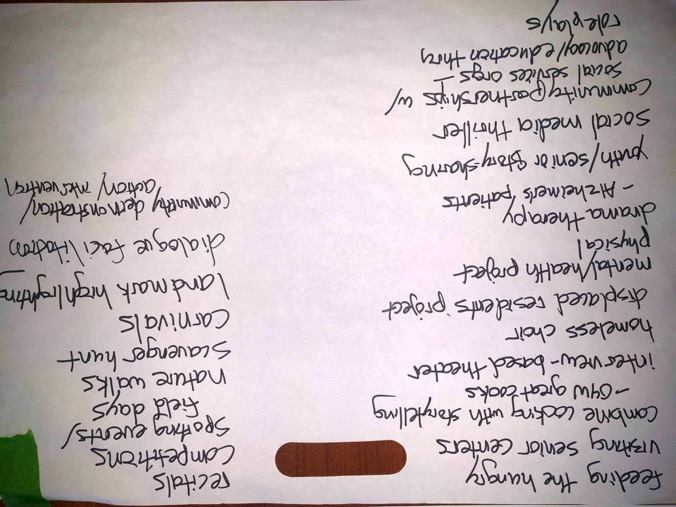 feeding the hungry
visiting senior centers
combine cooking with storytelling
- GYW great cooks
interview-based theater
homeless choir
displaced residents' project
mental/health project
physical
drama therapy
- Alzheimer's patients
youth/senior story sharing
social media thriller
community partnerships w/
social services orgs —
advocacy/education thru
role-plays
recitals
competitions
sporting events/
field days
nature walks
scavenger hunt
carnivals
landmark highlighting
dialogue facilitation
community demonstration/
action/intervention